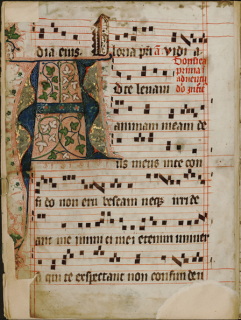 dia eius. Gloria pri ā Vidi a
Domica
prima
aduentꝯ
dn̄i
d te leuaui
animam meam de
us meus in te con
fi do non eru bescam neqꝫ irri de
ant me inimi ci mei etenim uniuer
si qui te exspectant non confun den